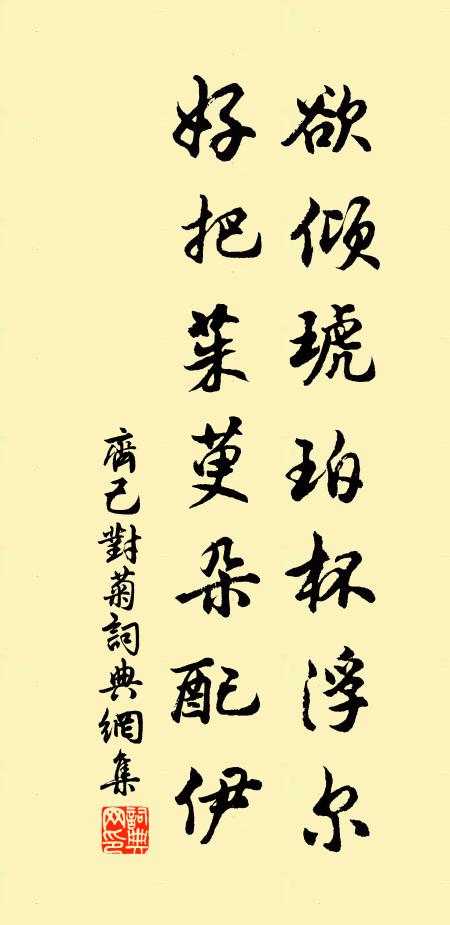 欲倾琥珀杯浮尔
好把茱萸朵配伊
齊己對菊詞典網集
詞典
网印